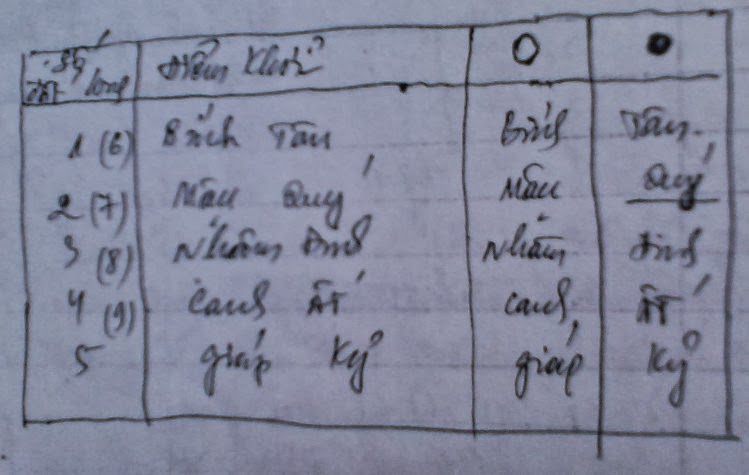 Số Điểm Khởi
ĐẤT long
1 (6) Bính Tân Bính Tân.
2 (7) Mậu Quý Mậu Quý
3 (8) Nhâm Đinh Nhâm Đinh
4 (9) Canh ẤT Canh ẤT
5 giáp Kỷ giáp Kỷ